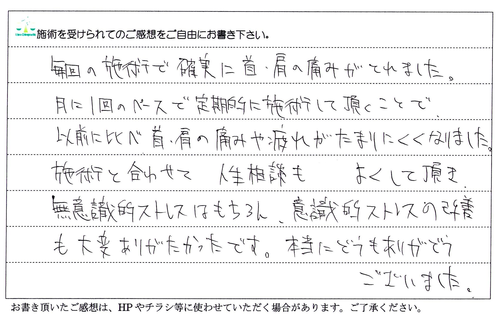 施術を受けられてのご感想をご自由にお書き下さい。
毎回の施術で確実に首・肩の痛みがとれました。
月に1回のペースで定期的に施術して頂くことで、
以前に比べ首・肩の痛みや疲れがたまりにくくなりました。
施術と合わせて 人生相談も よくして頂き
無意識的ストレスはもちろん、意識的ストレスの改善
も大変ありがたかったです。本当にどうもありがとう
ございました。
お書き頂いたご感想は、HPやチラシ等に使わせていただく場合があります。ご了承ください。